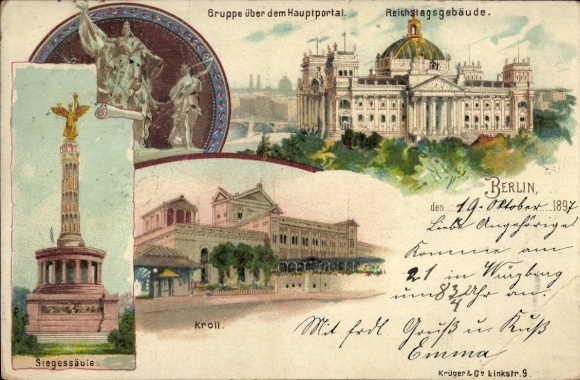 Gruppe über dem Hauptportal.
Reichstagsgebäude.
BERLIN,
den 19. Oktober 1897
Liebe Angehörige!
Komme am
21 in Würzburg
um 8 3/4 Uhr an.
Mit frdl. Gruß u. Kuß
Emma
Kroll.
Siegessäule.
Krüger & Co Linkstr. 9.